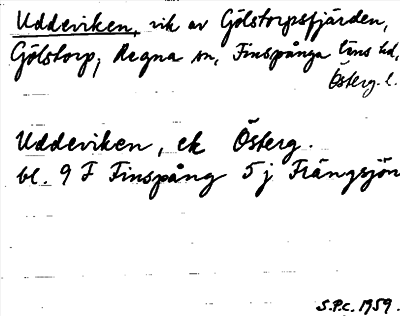 Uddeviken, vik av Gölstorpsfjärden,
Gölstorp, Regna sn, Finspånga läns hd,
Österg. l.
Uddeviken, ek Österg.
bl. 9 F Finspång 5 j Trängsjön
S.P.C. 1959.